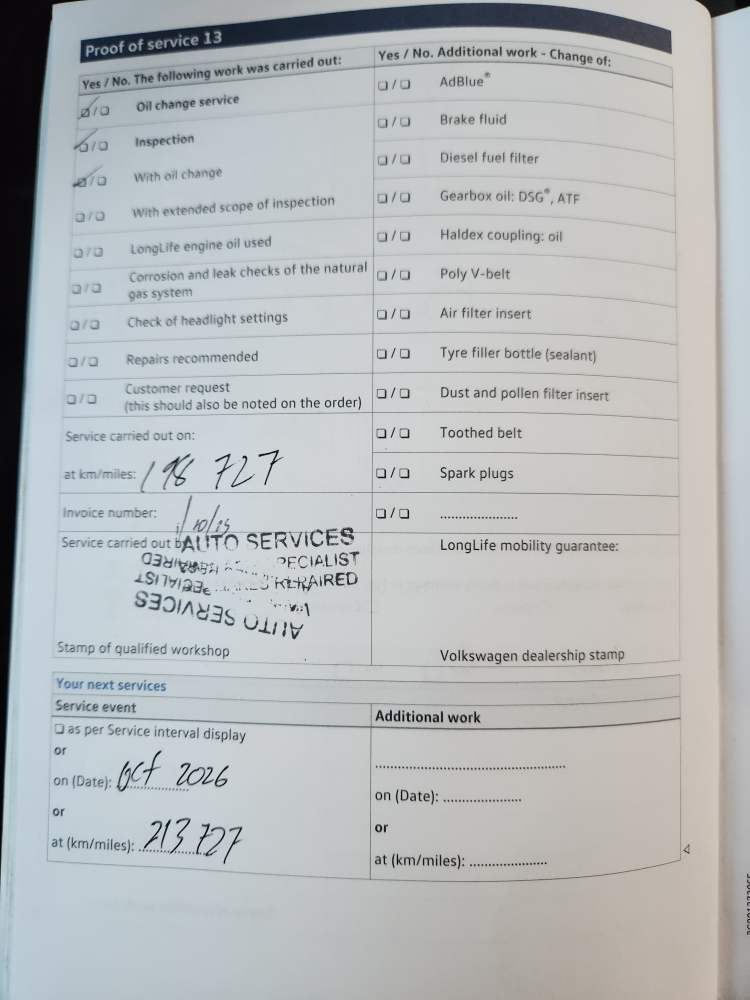 Proof of service 13
Yes / No. The following work was carried out:
☑/❏ Oil change service
☑/❏ Inspection
☑/❏ With oil change
❏/❏ With extended scope of inspection
❏/❏ LongLife engine oil used
❏/❏ Corrosion and leak checks of the natural
gas system
❏/❏ Check of headlight settings
❏/❏ Repairs recommended
❏/❏ Customer request
(this should also be noted on the order)
Service carried out on:
at km/miles: 198 727
Invoice number:
1/10/25
Service carried out by
AUTO SERVICES
PECIALIST
REPAIRED
AUTO SERVICES
Stamp of qualified workshop
Yes / No. Additional work - Change of:
❏/❏ AdBlue®
❏/❏ Brake fluid
❏/❏ Diesel fuel filter
❏/❏ Gearbox oil: DSG®, ATF
❏/❏ Haldex coupling: oil
❏/❏ Poly V-belt
❏/❏ Air filter insert
❏/❏ Tyre filler bottle (sealant)
❏/❏ Dust and pollen filter insert
❏/❏ Toothed belt
❏/❏ Spark plugs
❏/❏ .....................
LongLife mobility guarantee:
Volkswagen dealership stamp
Your next services
Service event
❏ as per Service interval display
or
on (Date): Oct 2026
or
at (km/miles): 213 727
Additional work
..................................................
on (Date): .....................
or
at (km/miles): .....................